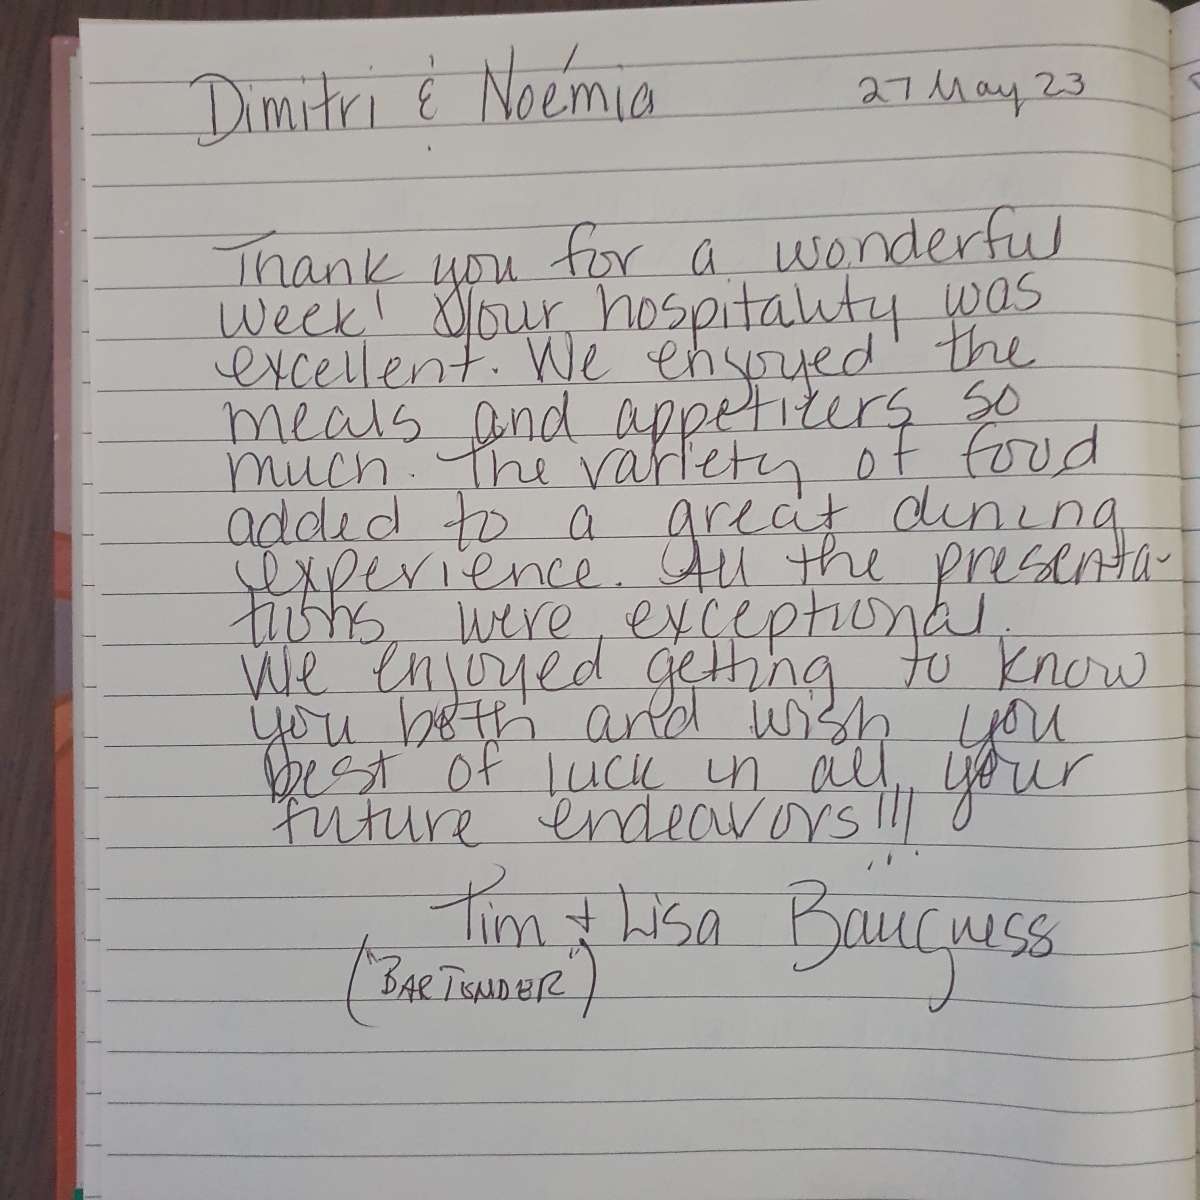 Dimitri & Noémia 27 May 23
Thank you for a wonderful
week! Your hospitality was
excellent. We enjoyed the
meals and appetizers so
much. The variety of food
added to a great dining
experience. All the presenta-
tions were exceptional.
We enjoyed getting to know
you both and wish you
best of luck in all your
future endeavors!!!
Tim + Lisa Baugness
("BARTENDER")